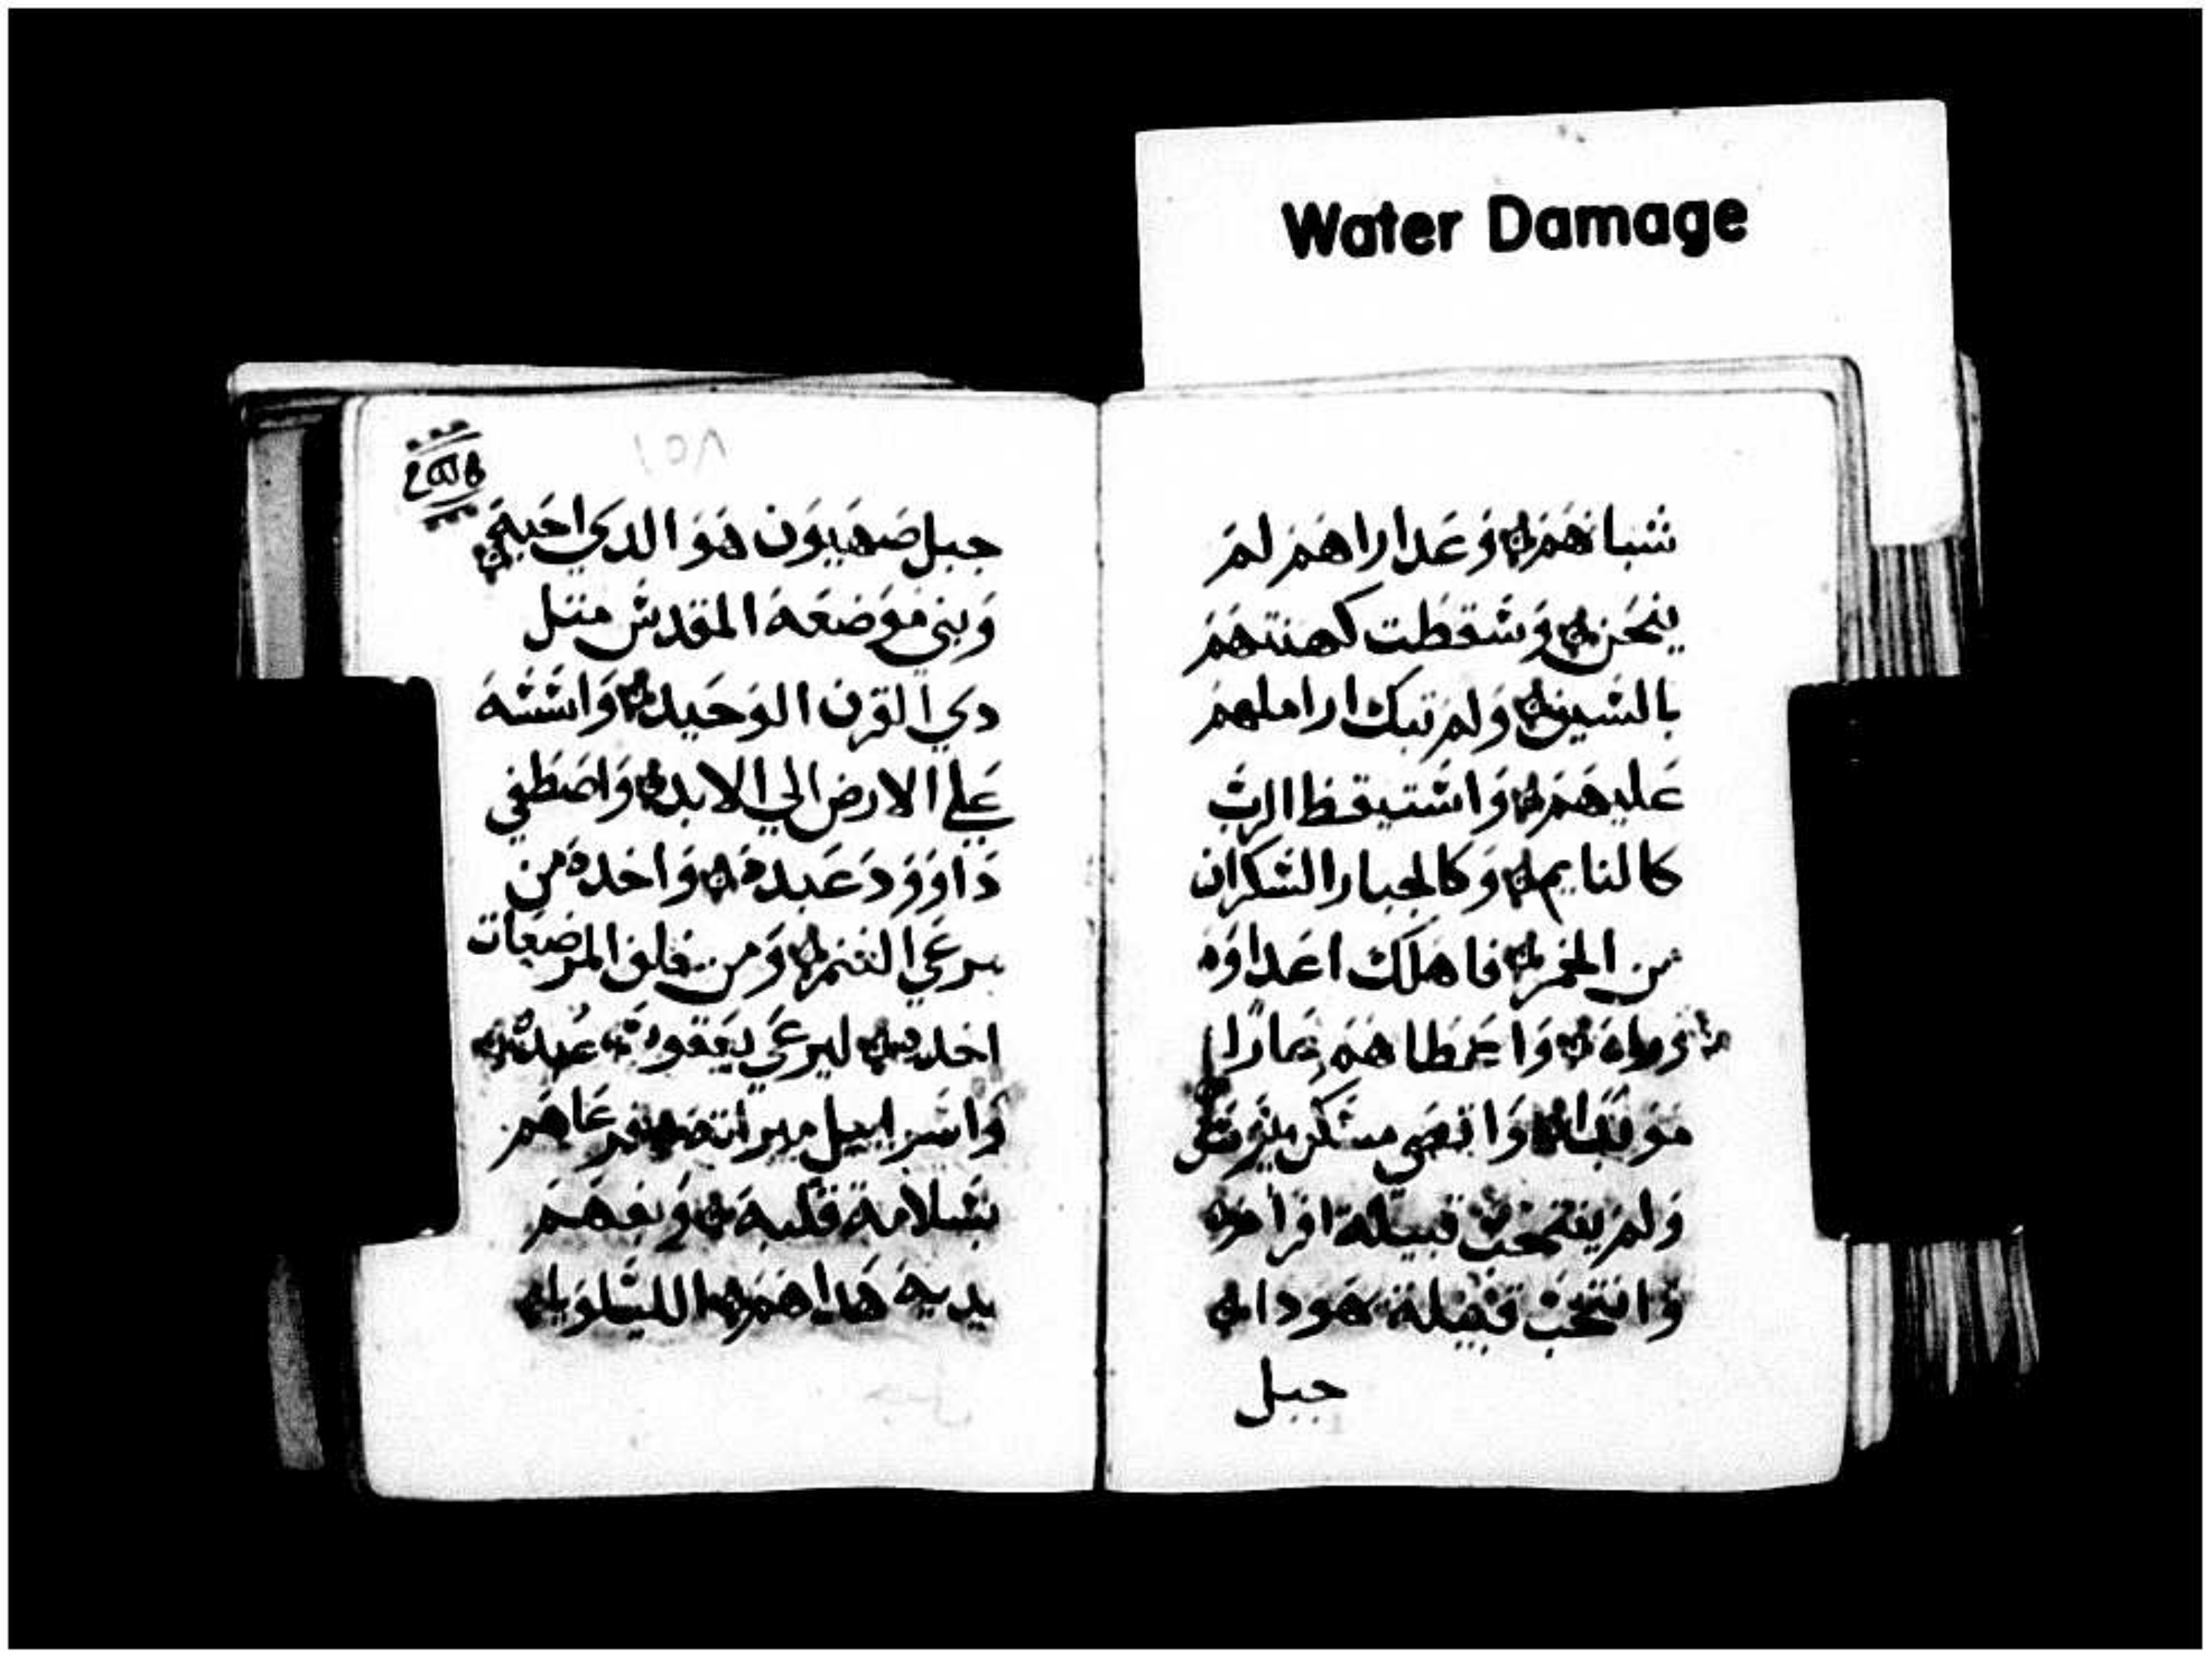 Water Damage
شبانهم وعداراهم لم
ينحن وشقطت كهنتهم
بالسيف ولم تبك اراملهم
عليهم واشتيقظ الرب
كالنايم وكالجبار الشكران
من الخمر فاهلك اعداوه
واعطاهم عارا
موبدا واقصى مشكن
ولم ينتخب قبيلة افرام
وانتخب قبيلة يهودا
جبل
جبل صهيون هو الدي احبه
وبنى موضعه المقدش متل
دي القرن الوحيد واششه
علي الارض الي الابد واصطفي
داوود عبده واخده من
مرعي الغنم ومن خلف المرضعات
اخده ليرعي يعقوب عبده
واشراييل ميراته فرعاهم
بشلامة قلبه وبفهم
يديه هداهم الليلويا